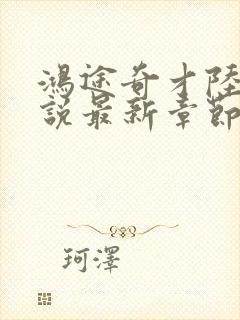 鴻途奇才陸
說最新章節
珂澤